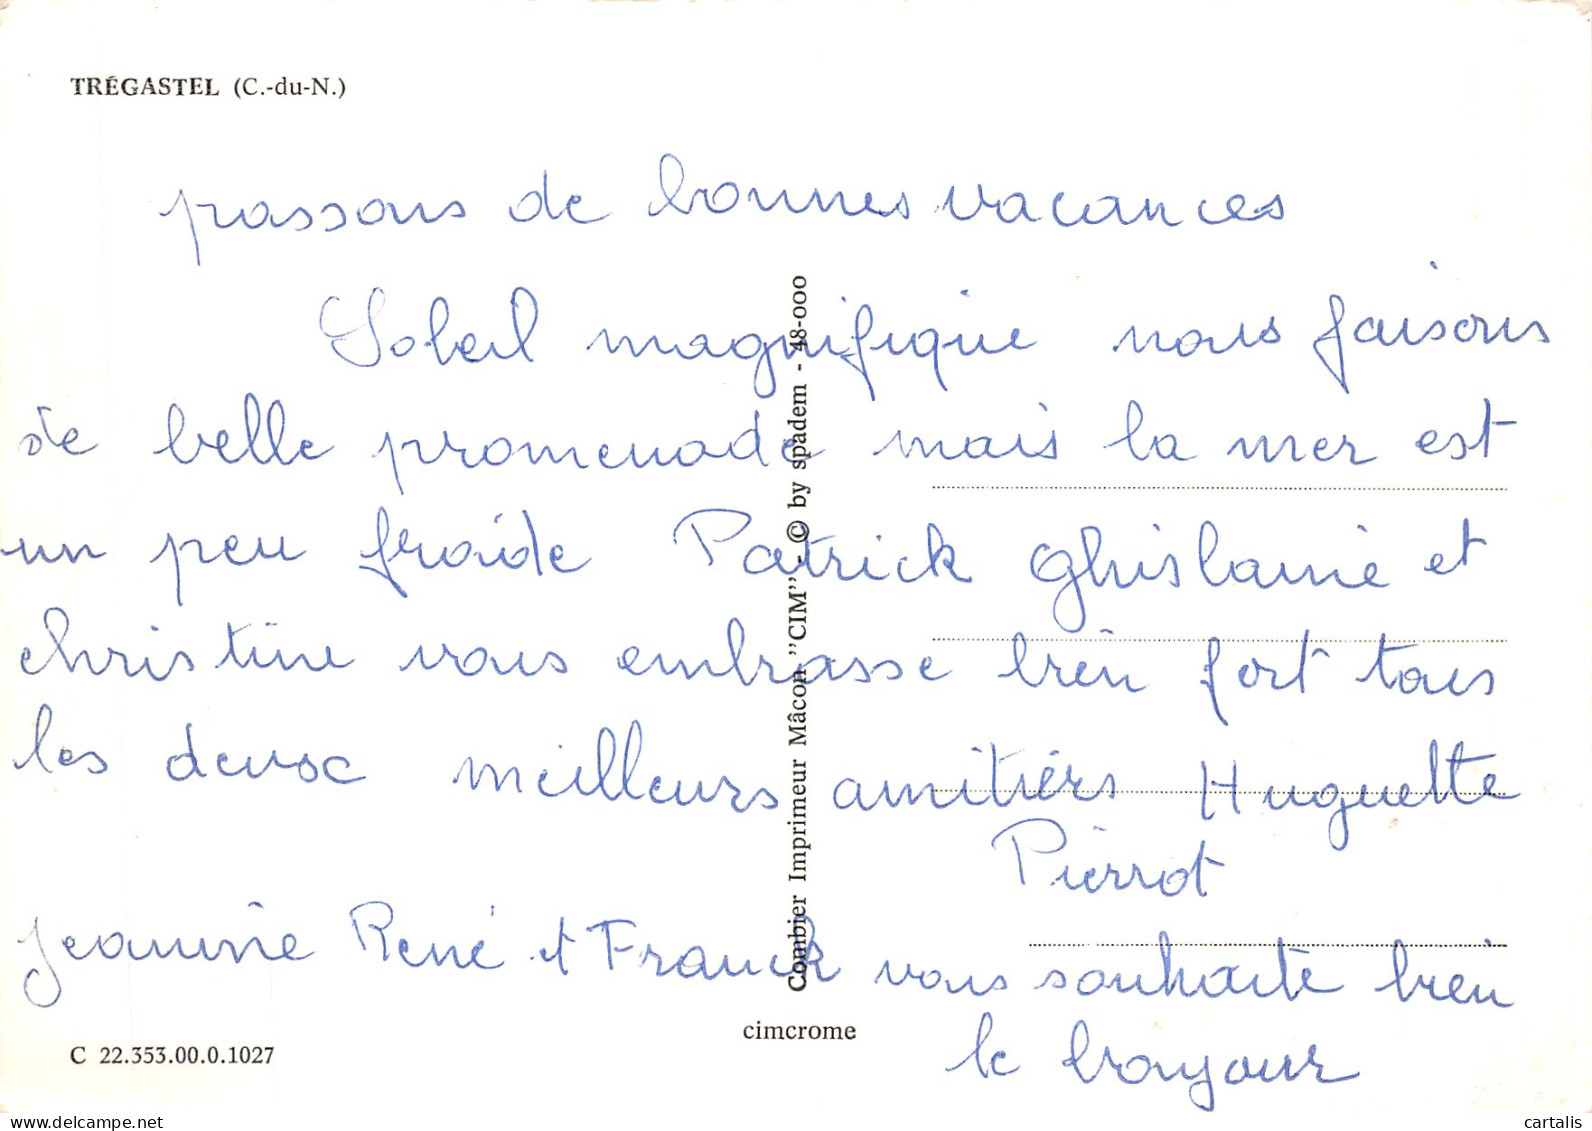 TRÉGASTEL (C.-du-N.)
passons de bonnes vacances
Soleil magnifique nous faisons
de belle promenade mais la mer est
un peu froide Patrick Ghislaine et
christine vous embrasse bien fort tous
les deux meilleurs amitiérs Huguette
Pierrot
Jeannine René et Franck vous souhaite bien
le bonjour
Combier Imprimeur Mâcon "CIM" - © by spadem - 48-000
cimcrome
C 22.353.00.0.1027
www.delcampe.net
cartalis